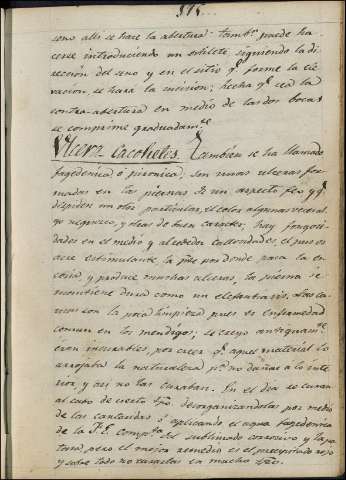 315..
seno alli se hace la abertura: tambn. puede ha
cerse introduciendo un estilete siguiendo la di
rección del seno y en el sitio qe. forme la ele
vacion se hará la incision; hecha qe. sea la
contra-abertura en medio de las dos bocas
se comprime graduadamte.
Ulcera Cacohetes. Tambien se ha llamado
fagedenica ó son unas ulceras for
madas en las piernas de un aspecto feo y qe.
despiden un olor particular, el color algunas veces al
go negruzco, y otras de buen caracter, hay fungosi
dades en el medio y alrededor callosidades, el pus es
acre estimulante, la pte. por donde pasa la en
coria, y produce muchas ulceras, la pierna se
mantiene dura como un elefantiasis. Las cau
sas son la poca limpieza pues es enfermedad
comun en los mendigos; se creyó antiguamte.
eran incurables, por creer qe. aquel material lo
arrojaba la naturaleza pa. no dañar a lo inte
rior, y asi no las curaban. En el dia se curan
al cabo de cierto tpo. desorganizandolas por medio
de las cantaridas ó aplicando el agua fagedenica
de la F. E. compta. del sublimado corrosivo y la po
tasa, pero el mejor remedio es el precipitado rojo
y sobre todo no curarlas en mucho tpo.